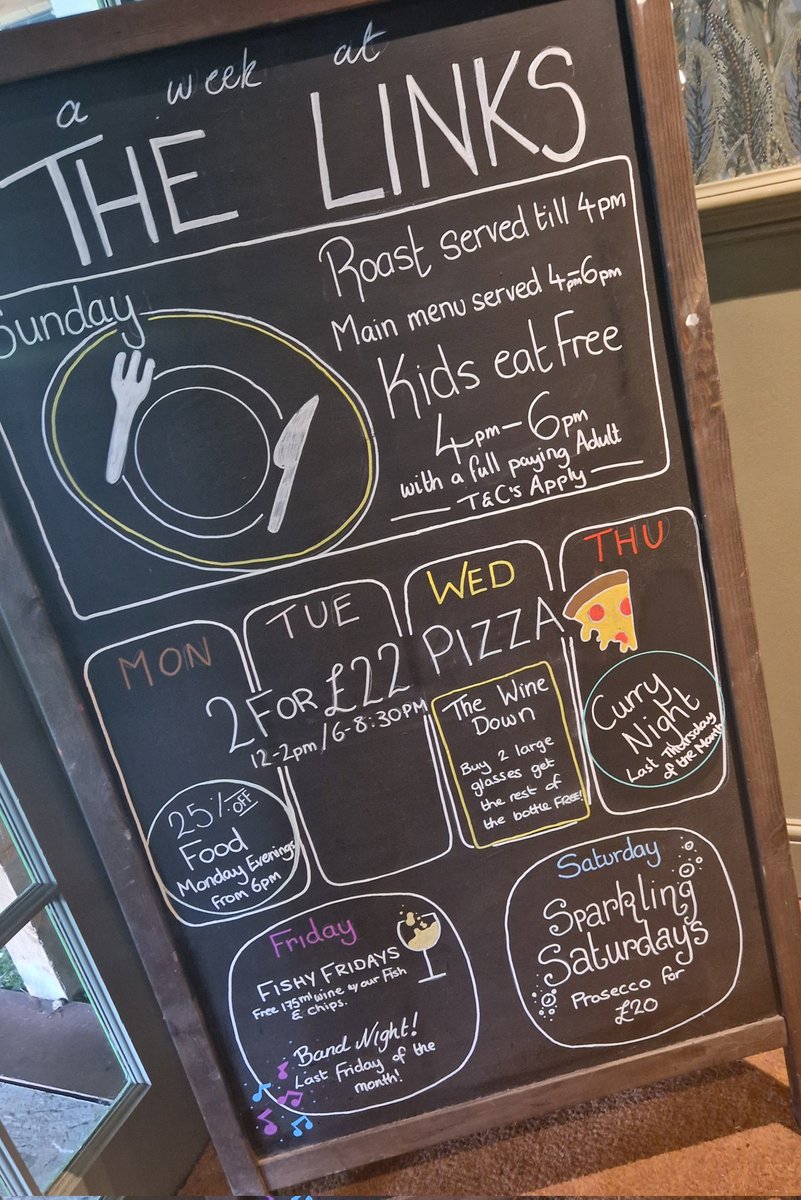 a week at
THE LINKS
Sunday
Roast served till 4pm
Main menu served 4pm-6pm
Kids eat Free
4pm-6pm
with a full paying Adult
T&C's Apply
MON
TUE
WED
THU
2 FOR £22 PIZZA
12-2pm/6-8:30PM
25% OFF
Food
Monday Evenings
From 6pm
The Wine
Down
Buy 2 large
glasses get
the rest of
the bottle FREE!
Curry
Night
Last Thursday
of the Month
Friday
FISHY FRIDAYS
Free 175ml wine w/ our Fish
& Chips.
Band Night!
Last Friday of the
month!
Saturday
Sparkling
Saturdays
Prosecco for
£20